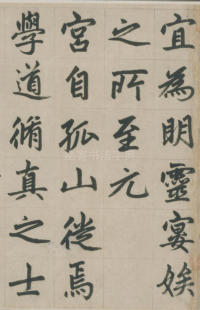 宜為明靈宴娭
之所至元
宮自孤山徙焉
學道脩真之士